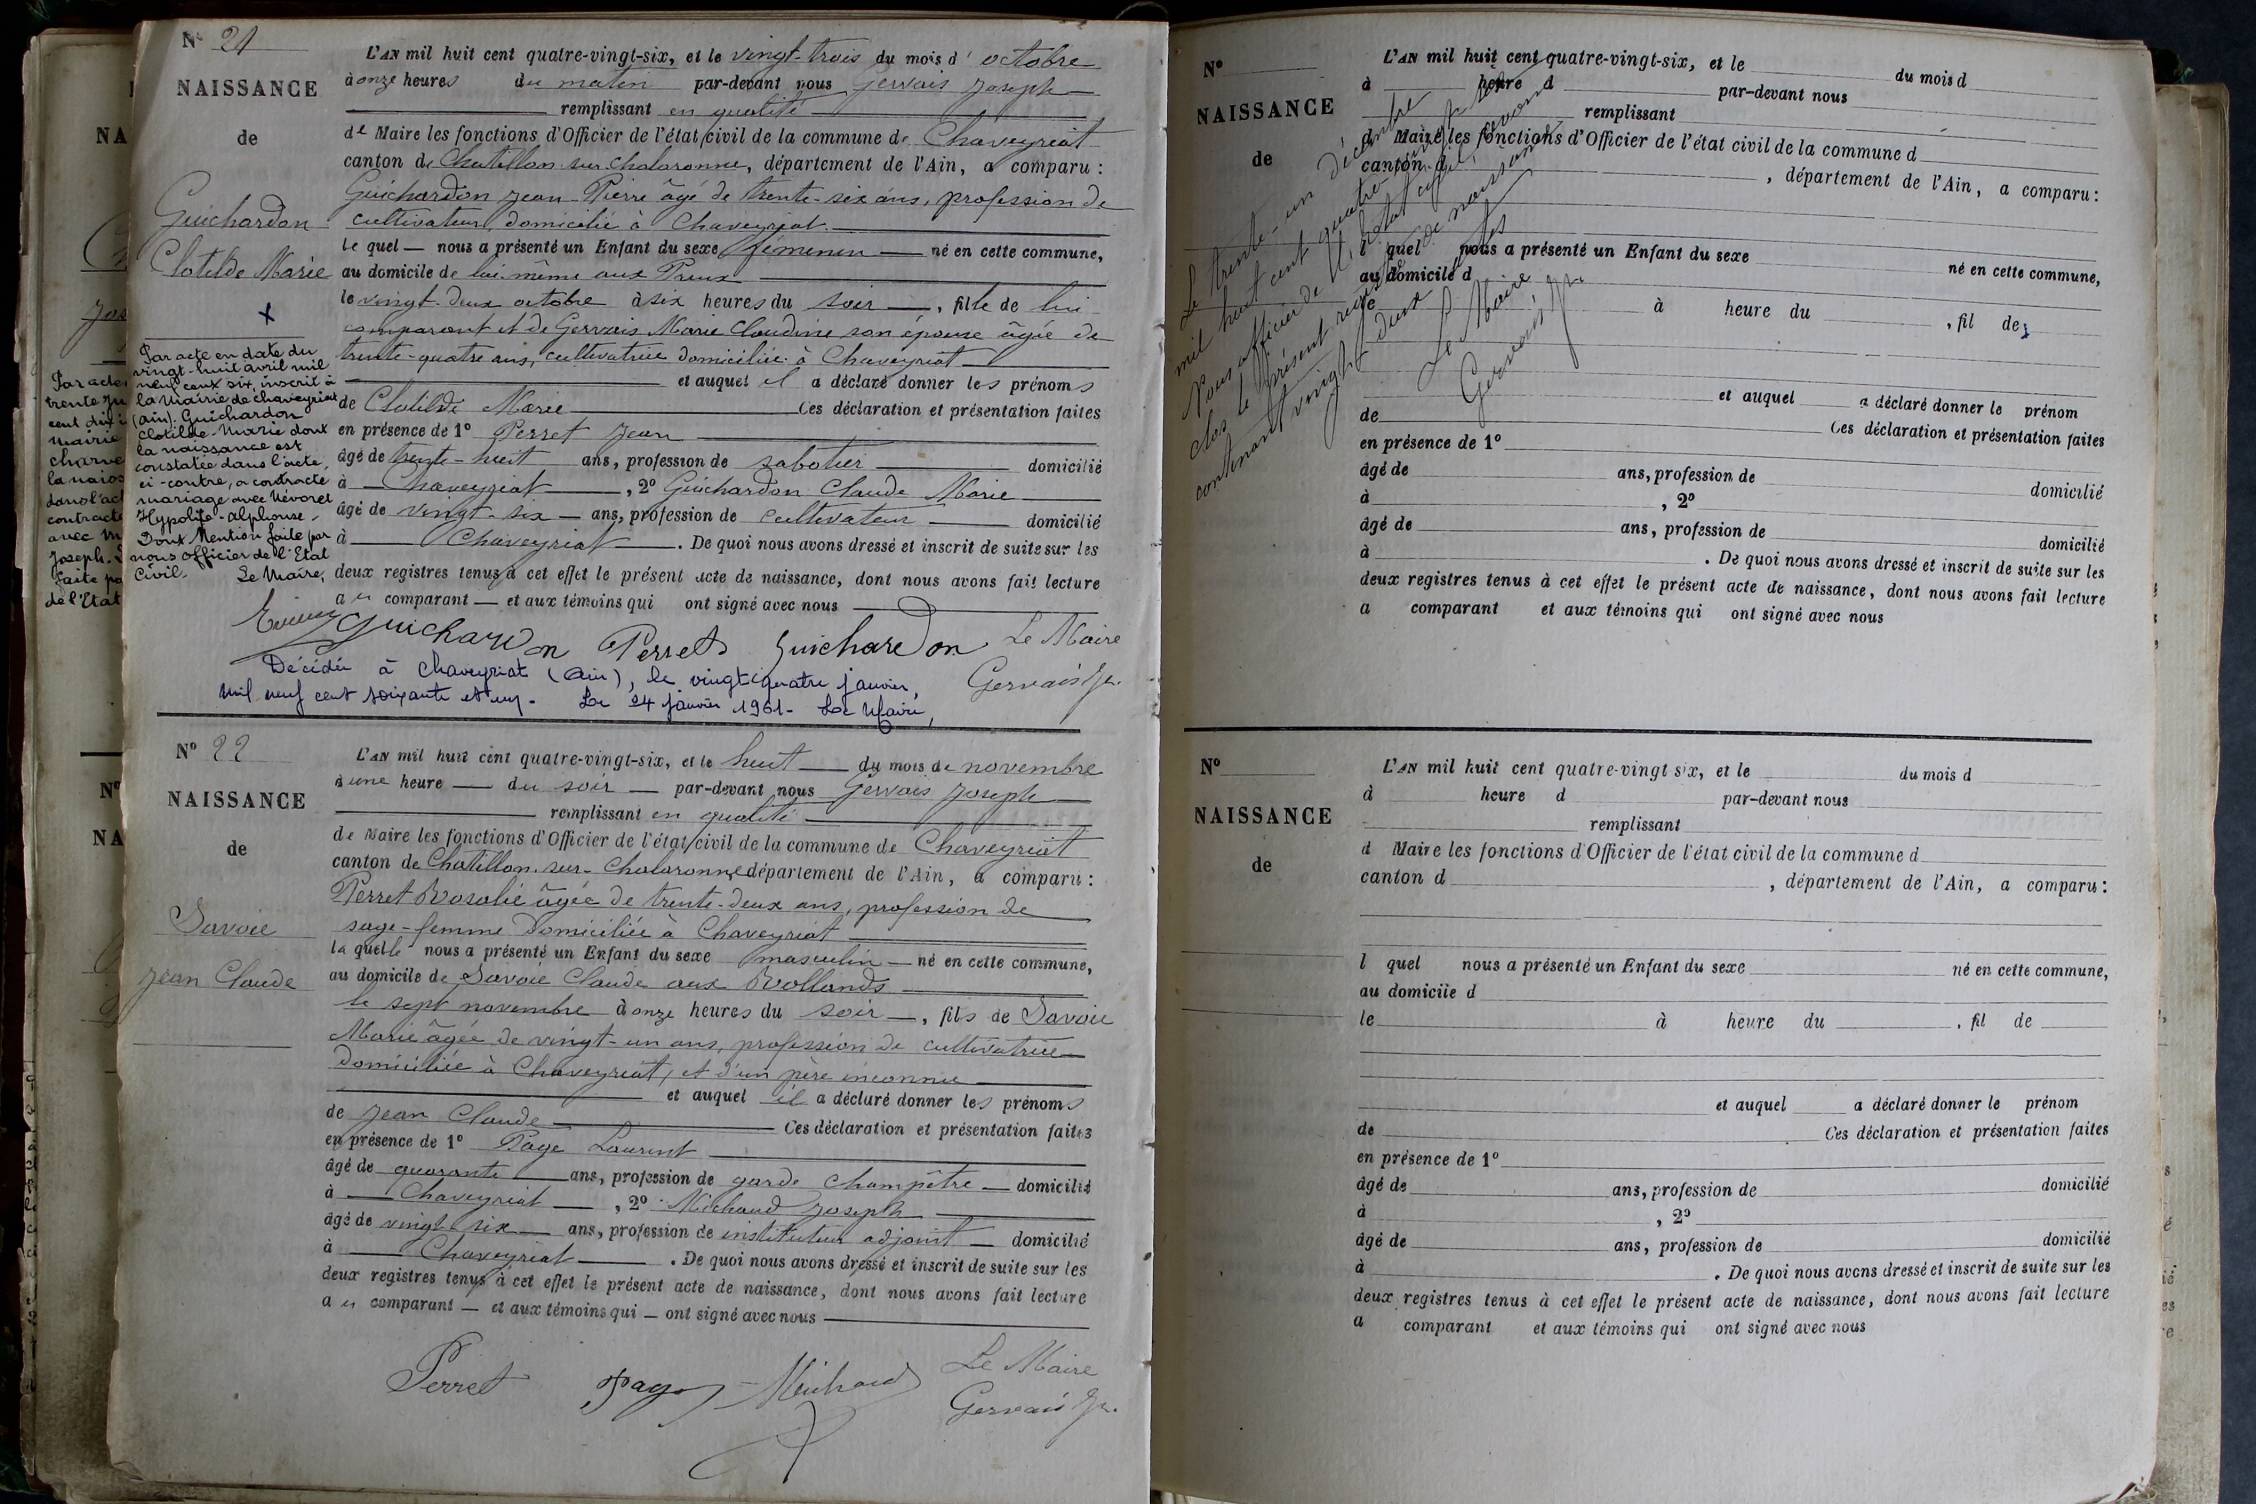 N° 21
NAISSANCE
de
Guichardon
Clotilde Marie
L'AN mil huit cent quatre-vingt-six, et le vingt-trois du mois d' octobre
à onze heures du matin par-devant nous Gervais Joseph
remplissant en qualité
de Maire les fonctions d'Officier de l'état civil de la commune de Chaveyriat
canton de Chatillon-sur-Chalaronne, département de l'Ain, a comparu :
Guichardon Jean-Pierre âgé de trente-six ans, profession de
cultivateur, domicilié à Chaveyriat
le quel — nous a présenté un Enfant du sexe féminin — né en cette commune,
au domicile de lui-même aux
le vingt-deux octobre à six heures du soir —, fille de lui
comparant et de Gervais Marie Claudine son épouse âgée de
trente-quatre ans, cultivatrice domiciliée à Chaveyriat
et auquel il a déclaré donner les prénoms
de Clotilde Marie Ces déclaration et présentation faites
en présence de 1° Perret Jean
âgé de trente-huit ans, profession de sabotier domicilié
à Chaveyriat, 2° Guichardon Claude Marie
âgé de vingt-six — ans, profession de cultivateur domicilié
à Chaveyriat. De quoi nous avons dressé et inscrit de suite sur les
deux registres tenus à cet effet le présent acte de naissance, dont nous avons fait lecture
au comparant — et aux témoins qui ont signé avec nous
Par acte en date du
vingt-huit avril mil
neuf cent six, inscrit à
la Mairie de Chaveyriat
(Ain). Guichardon
Clotilde-Marie dont
la naissance est
constatée dans l'acte,
ci-contre, a contracté
mariage avec Névoret
Hypolite-Alphonse.
Dont Mention faite par
nous officier de l'Etat
Civil.
Le Maire,
Guichardon Perret Guichardon Le Maire
Gervais Jh.
Décédée à Chaveyriat (Ain), le vingt quatre janvier,
mil neuf cent soixante et un. Le 24 janvier 1961 - Le Maire,
N° 22
NAISSANCE
de
Savoie
Jean Claude
L'AN mil huit cent quatre-vingt-six, et le huit du mois de novembre
à une heure — du soir — par-devant nous Gervais Joseph
remplissant en qualité
de Maire les fonctions d'Officier de l'état civil de la commune de Chaveyriat
canton de Chatillon-sur-Chalaronne département de l'Ain, a comparu :
Perret Rosalie âgée de trente-deux ans, profession de
sage-femme domiciliée à Chaveyriat
la quelle nous a présenté un Enfant du sexe masculin — né en cette commune,
au domicile de Savoie Claude aux Rollands
le sept novembre à onze heures du soir —, fils de Savoie
Marie âgée de vingt-un ans, profession de cultivatrice
domiciliée à Chaveyriat, et d'un père inconnu
et auquel il a déclaré donner les prénoms
de Jean Claude Ces déclaration et présentation faites
en présence de 1° Page Laurent
âgé de quarante ans, profession de garde champêtre — domicilié
à Chaveyriat, 2° Michaud Joseph
âgé de vingt-six ans, profession de instituteur adjoint — domicilié
à Chaveyriat. De quoi nous avons dressé et inscrit de suite sur les
deux registres tenus à cet effet le présent acte de naissance, dont nous avons fait lecture
au comparant — et aux témoins qui — ont signé avec nous
Perret Page Michaud Le Maire
Gervais Jh.
N°
NAISSANCE
de
L'AN mil huit cent quatre-vingt-six, et le du mois d
à heure d par-devant nous
remplissant
d Maire les fonctions d'Officier de l'état civil de la commune d
canton d , département de l'Ain, a comparu :
l quel nous a présenté un Enfant du sexe né en cette commune,
au domicile d
le à heure du , fil de
et auquel a déclaré donner le prénom
de Ces déclaration et présentation faites
en présence de 1°
âgé de ans, profession de domicilié
à , 2°
âgé de ans, profession de domicilié
à . De quoi nous avons dressé et inscrit de suite sur les
deux registres tenus à cet effet le présent acte de naissance, dont nous avons fait lecture
a comparant et aux témoins qui ont signé avec nous
Le trente-un décembre
mil huit cent quatre vingt six
Nous officier de l'état civil, avons
clos le présent registre de naissance
contenant vingt-deux actes
Le Maire
Gervais Jh
N°
NAISSANCE
de
L'AN mil huit cent quatre-vingt six, et le du mois d
à heure d par-devant nous
remplissant
d Maire les fonctions d'Officier de l'état civil de la commune d
canton d , département de l'Ain, a comparu :
l quel nous a présenté un Enfant du sexe né en cette commune,
au domicile d
le à heure du , fil de
et auquel a déclaré donner le prénom
de Ces déclaration et présentation faites
en présence de 1°
âgé de ans, profession de domicilié
à , 2°
âgé de ans, profession de domicilié
à . De quoi nous avons dressé et inscrit de suite sur les
deux registres tenus à cet effet le présent acte de naissance, dont nous avons fait lecture
a comparant et aux témoins qui ont signé avec nous